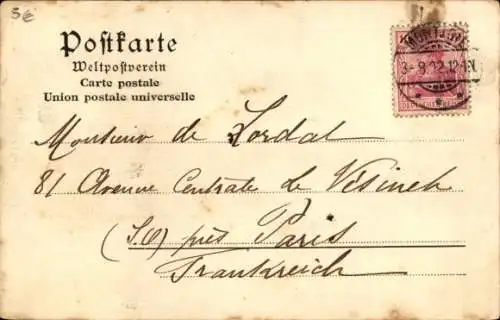 5€
Postkarte
Weltpostverein
Carte postale
Union postale universelle
3-8 02.12-1N.
Monsieur de Lordat
81 Avenue Centrale le Vésinet
(S.O) près Paris
Frankreich